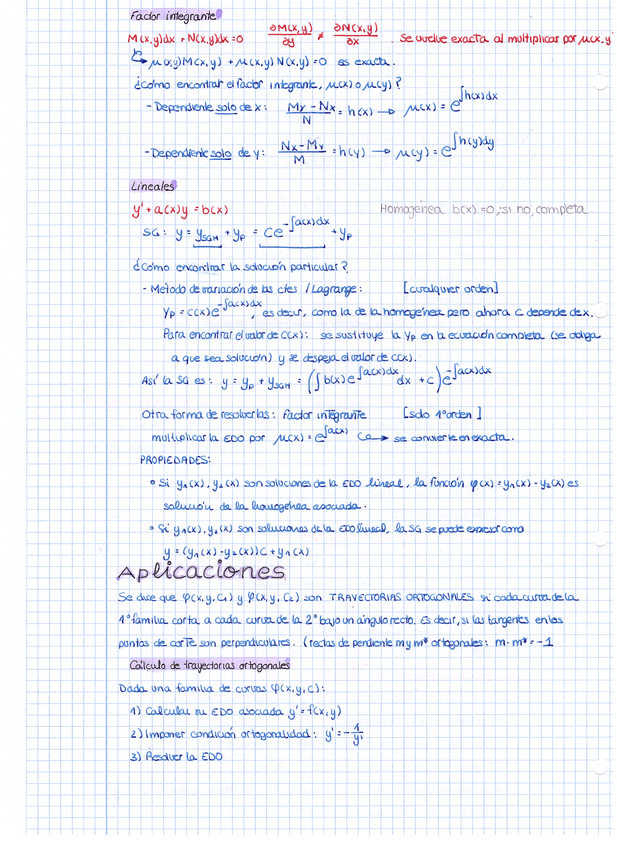 Factor integrante
M(x,y)dx + N(x,y)dx = 0   ∂M(x,y)/∂y ≠ ∂N(x,y)/∂x . Se vuelve exacta al multiplicar por μ(x,y
↳ μ(x,y)M(x,y) + μ(x,y)N(x,y) = 0 es exacta.
¿Cómo encontrar el factor integrante, μ(x) o μ(y)?
- Dependiente solo de x: (My - Nx)/N = h(x) → μ(x) = e^∫h(x)dx
- Dependiente solo de y: (Nx - My)/M = h(y) → μ(y) = e^∫h(y)dy
Lineales
y' + a(x)y = b(x)   Homogénea b(x) = 0, si no, completa.
SG: y = y_SGH + y_P = Ce^-∫a(x)dx + y_P
¿Cómo encontrar la solución particular?
- Método de variación de las ctes / Lagrange: [cualquier orden]
y_P = C(x)e^-∫a(x)dx, es decir, como la de la homogénea pero ahora C depende de x.
Para encontrar el valor de C(x): se sustituye la y_P en la ecuación completa (se obliga
a que sea solución) y se despeja el valor de C(x).
Así la SG es: y = y_P + y_SGH = (∫b(x)e^∫a(x)dx dx + C)e^-∫a(x)dx
Otra forma de resolverlas: factor integrante [solo 1º orden ]
multiplicar la EDO por μ(x) = e^∫a(x) ↪ se convierte en exacta.
PROPIEDADES:
• Si y₁(x), y₂(x) son soluciones de la EDO lineal, la función φ(x) = y₁(x) - y₂(x) es
solución de la homogénea asociada.
• Si y₁(x), y₂(x) son soluciones de la EDO lineal, la SG se puede expresar como
y = (y₁(x) - y₂(x))C + y₁(x)
Aplicaciones
Se dice que φ(x,y,C₁) y ψ(x,y,C₂) son TRAYECTORIAS ORTOGONALES si cada curva de la
1º familia corta a cada curva de la 2º bajo un ángulo recto. Es decir, si las tangentes en los
puntos de corte son perpendiculares. (rectas de pendiente m y m* ortogonales: m · m* = -1
Cálculo de trayectorias ortogonales
Dada una familia de curvas φ(x,y,C):
1) Calcular su EDO asociada y' = f(x,y)
2) Imponer condición ortogonalidad: y' = -1/y'
3) Resolver la EDO